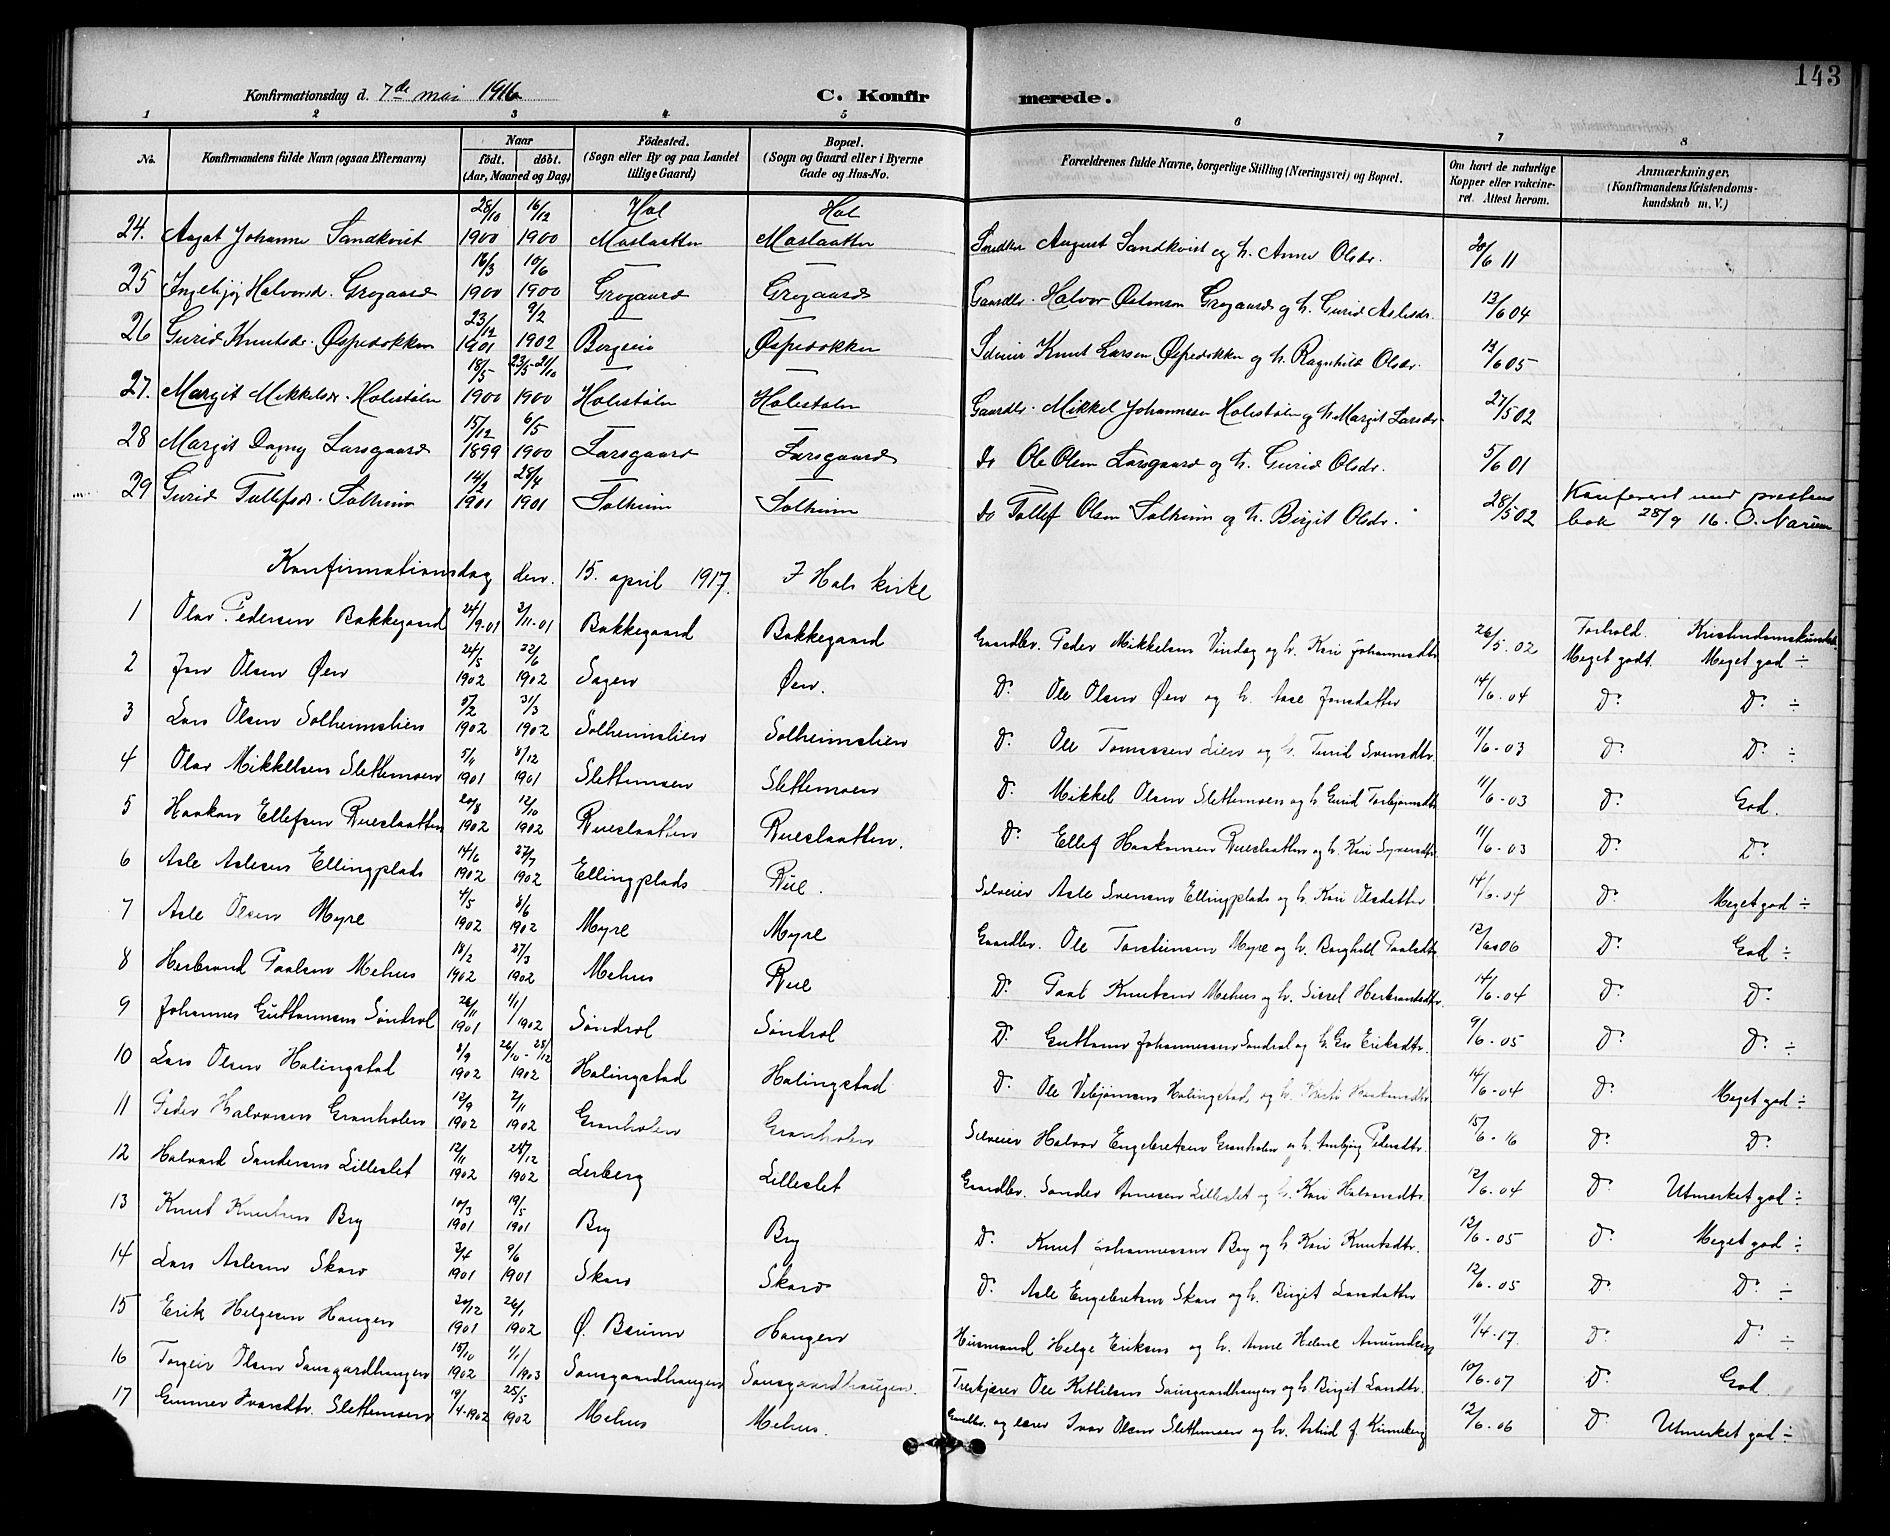 143
Konfirmationsdag d. 7de mai 1916 C. Konfirmerede.
1 2 3 4 5 6 7 8
No. Konfirmandens fulde Navn (ogsaa Efternavn) Naar født. døbt. (Aar, Maaned og Dag) Fødested. (Sogn eller By og paa Landet tillige Gaard) Bopæl. (Sogn og Gaard eller i Byerne Gade og Hus-No. Forældrenes fulde Navne, borgerlige Stilling (Næringsvei) og Bopæl. Om havt de naturlige Kopper eller vakcineret. Attest herom. Anmærkninger. (Konfirmandens Kristendomskundskab m. V.)
24. Aagot Johanne Sandkvist 28/10 1900 16/12 1900 Hol Moslaatten Hol Moslaatten August Sandkvist og h. Anne Olsdr. 20/6 11
25 Ingebjøj Halvorsd. Grogaard 16/3 1900 10/6 1900 Grogaard Grogaard Gaardbr. Halvor Østensen Grogaard og h. Gurid Aslesdr. 13/6 04
26 Gurid Knutsdr. Øspedokken 23/12 1901 9/2 1902 Bergeie Øspedokken Selveier Knut Larsen Øspedokken og h. Ragnhild Olsdr. 14/6 05
27. Margit Mikkelsdr. Holestølen 18/5 1900 23/5-21/10 1900 Holestølen Holestølen Gaardbr. Mikkel Johannesen Holestølen og h. Margit Larsdr 27/5 02
28 Margit Dagny Larsgaard 15/12 1899 6/5 1900 Larsgaard Larsgaard do Ole Olsen Larsgaard og h. Gurid Olsdr. 5/6 01
29 Gurid Tollefsdr. Solheim 14/2 1901 28/4 1901 Solheim Solheim do Tollef Olsen Solheim og h. Birgit Olsdr. 28/5 02 Konferert med prestens bok 28/9 16. O. Narum
Konfirmationsdag den. 15. april 1917. I Hols kirke
Forhold. Kristendomskundsk.
1 Olav Pedersen Bakkegaard 24/9-01 3/11-01 Bakkegaard Bakkegaard Gaardbr. Peder Mikkelsen Vindag og h. Kari Johannesdtr 26/5.02 Meget godt. Meget god ÷
2 Jon Olsen Øen 24/5 1902 22/6 1902 Sagen Øen. D. Ole Olsen Øen og h. Aase Jonsdatter 14/6-04 D. D. ÷
3 Lars Olsen Solheimslien 5/2 1902 31/3 1902 Solheimslien Solheimslien D. Ole Tomassen Lien og h. Turid Svensdtr. 11/6-03 D. D. ÷
4 Olav Mikkelsen Slettemoen 5/11 1901 8/12 1901 Slettemoen Slettemoen D. Mikkel Olsen Slettemoen og h. Gurid Torbjørnsdtr 11/6-03 D. God.
5 Haakon Ellefsen Rueslaatten 20/8 1902 12/10 1902 Rueslaatten Rueslaatten. D. Ellef Haakonsen Rueslaatten og h. Kari Syversdtr. 11/6-03 D. D.
6 Asle Aslesen Ellingplads 14/6 1902 27/7 1902 Ellingplads Rue. Selveier Asle Svensen Ellingplads og h. Kari Olsdatter 14/6-04 D. Meget god ÷
7 Asle Olsen Myre 4/5 1902 8/6 1902 Myre Myre Gaardbr. Ole Torstensen Myre og h. Borghild Paalsdtr 12/6 06 D. God ÷
8 Herbrand Paalsen Mehus 18/2 1902 27/3 1902 Mehus Rue D. Paal Knutsen Mehus og h. Sissel Herbrandsdtr. 14/6-04 D. D.
9 Johannes Guttormsen Søndrol 26/11 1901 1/1 1902 Søndrol Søndrol D. Guttorm Johannessen Søndrol og h. Gro Eriksdtr. 9/6-05 D. D. ÷
10 Lars Olsen Holingstad 8/9 1902 26/10-25/12 1902 Holingstad Holingstad D. Ole Vebjørnsen Holingstad og h. Haakonsdtr. 14/6-04 D. Meget god ÷
11 Peder Halvorsen Granholen 12/9 1902 2/11 1902 Granholen Granholen Selveier Halvor Engebretsen Granholen og h. Pedersdtr 15/6-16 D. D.
12 Halvard Sandersen Lilleslet 12/11 1902 28/12 1902 Lerberg Lilleslet Gaardbr. Sander Arnesen Lilleslet og h. Kari Halvorsdtr. 12/6-04 D. Utmerket god ÷
13 Knut Knutsen Bry 10/3 1901 19/5 1901 Bry Bry D. Knut Johannessen Bry og h. Kari Knutsdtr. 12/6-05 D. Meget god ÷
14 Lars Aslesen Skaro 3/4 1901 9/6 1901 Skaro Skaro D. Asle Engebretsen Skaro og h. Birgit Larsdatter 12/6-05 D. D. ÷
15 Erik Helgesen Haugen 20/12 1901 26/1 1902 Ø. Bærum Haugen Husmand Helge Eriksen og h. Anne Helene Amundsen 11/4-17. D. D. ÷
16 Torgeir Olsen Sausgaardhaugen 15/10 1902 1/1 1903 Sausgaardhaugen Sausgaardhaugen. Træskjærer Ole Kittilsen Sausgaardhaugen og h. Birgit 10/6-07 D. God.
17 Gunvor Ivarsdtr. Slettemoen 19/4-1902 25/5 1902 Mehus Mehus. Gaardbr. og lærer Ivar Olsen Slettemoen og h. Astrid f. Kinneberg 12/6-06 D. Utmerket god ÷